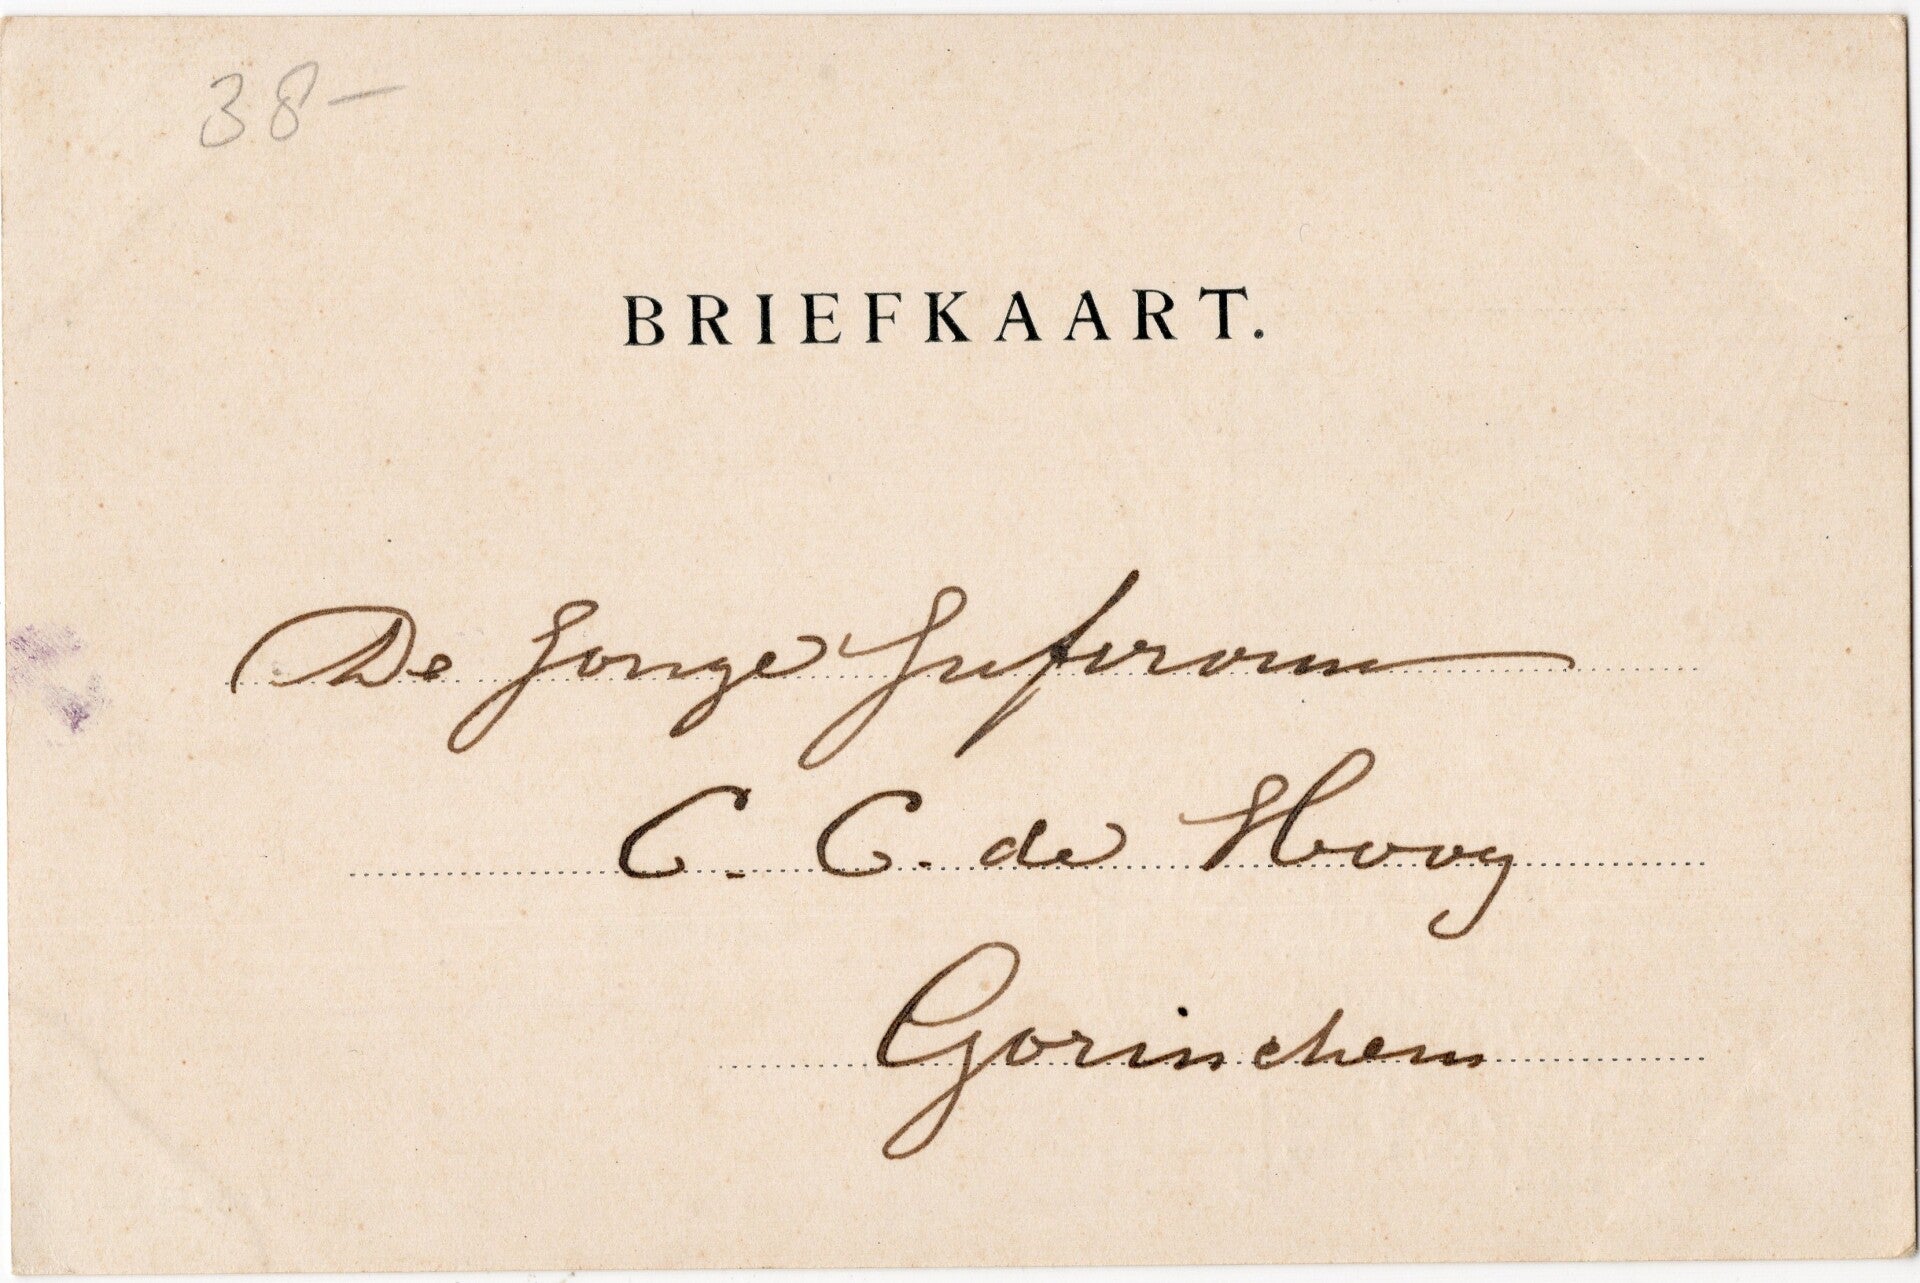 38-
BRIEFKAART.
De Jonge Jufvrouw
C. C. de Hoog
Gorinchem